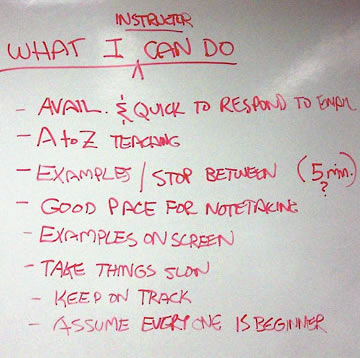 INSTRUCTOR
WHAT I CAN DO
- AVAIL. & QUICK TO RESPOND TO EMAIL
- A to Z TEACHING
- EXAMPLES / STOP BETWEEN (5 min. ?)
- GOOD PACE FOR NOTETAKING
- EXAMPLES ON SCREEN
- TAKE THINGS SLOW
- KEEP ON TRACK
- ASSUME EVERYONE IS BEGINNER